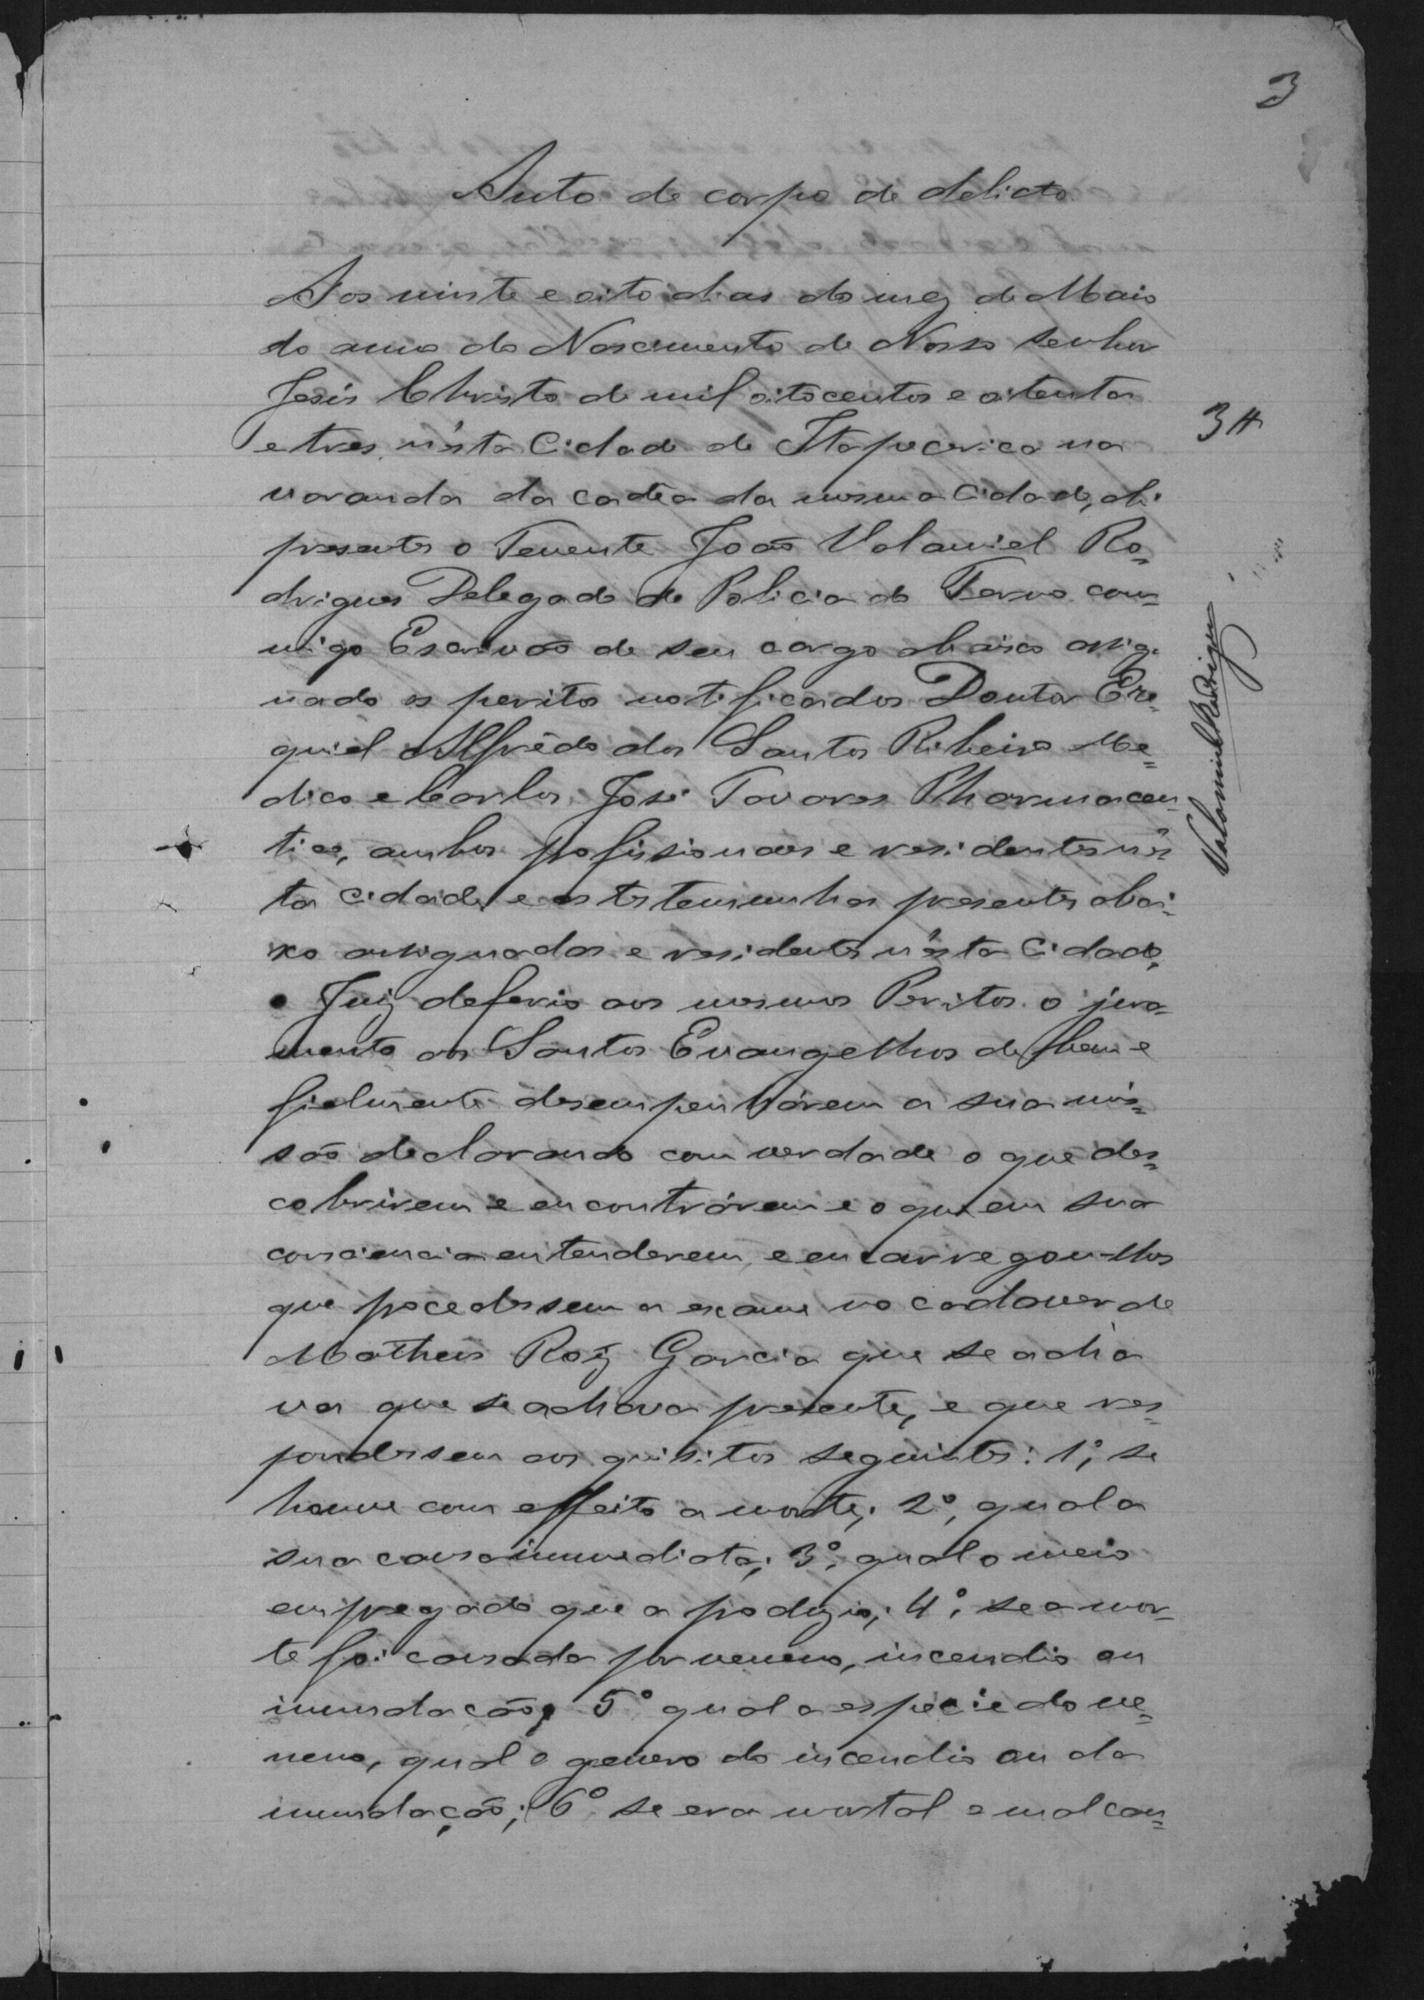 3
Auto de corpo de delicto
Aos vinte e oito dias do mez de Maio
do anno do Nascimento de Nosso Senhor
Jesús Christo de mil oitocentos e oitenta
e tres, n'esta Cidade de Itapecerica na
3 H
varanda da cadêa da mesma Cidade, ahi
presentes o Tenente João Valamiel Ro=
drigues Delegado de Policia do Termo com=
migo Escrivão de seu cargo abaixo assig=
nado os peritos notificados Doutor Eze=
quiel Alfrêdo dos Santos Ribeiro Me=
dico e Carlos José Tavares Pharmaceu=
tico, ambos profissionaes e residentes n'es
ta cidade, e as testemunhas presentes abai=
xo assignadas e residentes n'esta Cidade,
Valamiel Rodrigues
o Juiz deferio aos mesmos Peritos o jura=
mento aos Santos Evangelhos de bem e
fielmente desempenhárem a sua mis=
são declarando com verdade o que des=
cobrirem e encontrárem e o que em sua
consciencia entenderem, e encarregou-lhes
que procedessem a exame no cadaver de
Matheus Roiz Garcia que se acha
va que se achava presente, e que res=
pondessem aos quisitos seguintes: 1º, se
houve com effeito a morte; 2º, qual a
sua causa immediata; 3º, qual o meio
empregado que a produzio; 4º, se a mor=
te foi causada por veneno, incendio ou
inundação; 5º qual a especie do ve=
neno, qual o genero do incendio ou da
inundação; 6º se era mortal o mal cau=